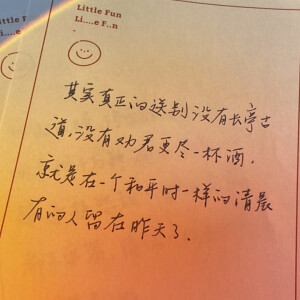 Little Fun
Li....e F..n
Little Fun
Li....e F..n
其实真正的送别没有长亭古
道,没有劝君更尽一杯酒,
就是在一个和平时一样的清晨
有的人留在昨天了.